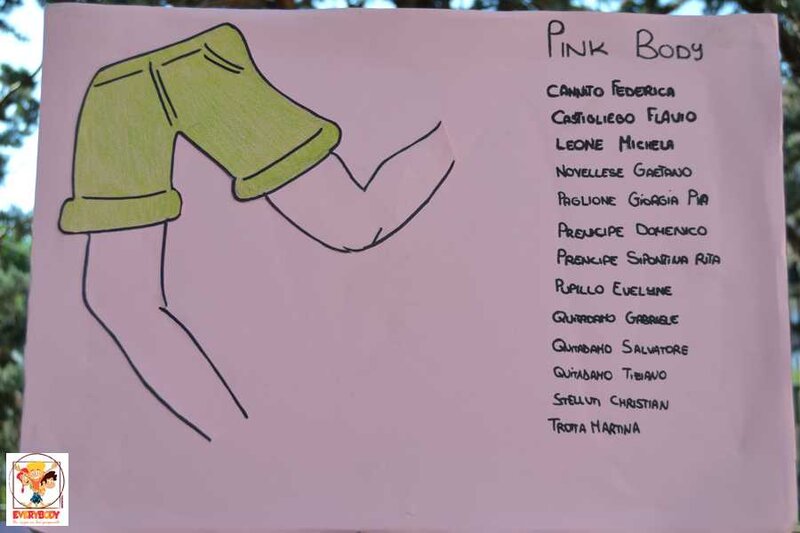 PINK BODY
CANNATO FEDERICA
CASTIGLIEGO FLAVIO
LEONE MICHELA
NOVELLESE GAETANO
PAGLIONE GIORGIA PIA
PRENCIPE DOMENICO
PRENCIPE SIPONTINA RITA
PUPILLO EVELYNE
QUITADAMO GABRIELE
QUITADAMO SALVATORE
QUITADAMO TIZIANO
STELLUTI CHRISTIAN
TROTTA MARTINA
EVERYBODY